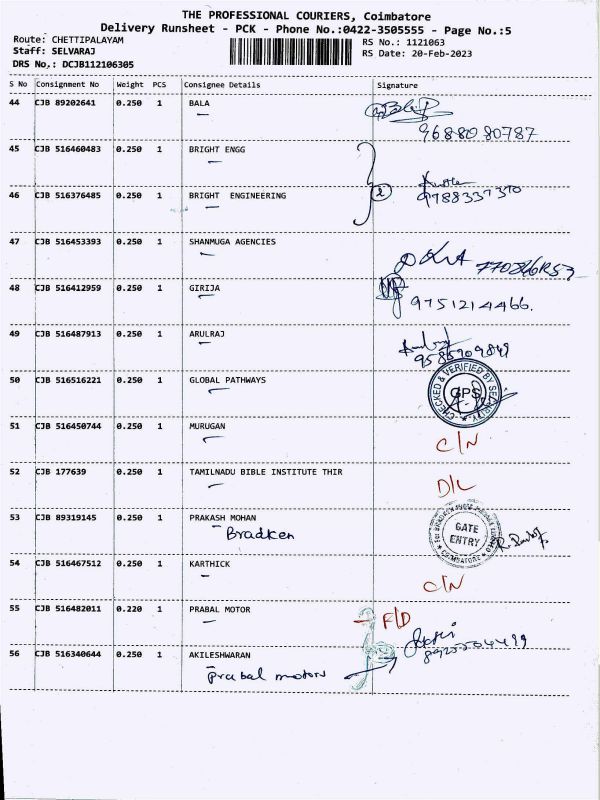 THE PROFESSIONAL COURIERS, Coimbatore
Delivery Runsheet - PCK - Phone No.:0422-3505555 - Page No.:5
Route: CHETTIPALAYAM
RS No.: 1121063
Staff: SELVARAJ
RS Date: 20-Feb-2023
DRS No.: DCJB112106305
S No Consignment No Weight PCS Consignee Details Signature
44 CJB 89202641 0.250 1 BALA
9688080787
45 CJB 516460483 0.250 1 BRIGHT ENGG
46 CJB 516376485 0.250 1 BRIGHT ENGINEERING 2
9788337370
47 CJB 516453393 0.250 1 SHANMUGA AGENCIES
48 CJB 516412959 0.250 1 GIRIJA
9751214466.
49 CJB 516487913 0.250 1 ARULRAJ
9585909849
50 CJB 516516221 0.250 1 GLOBAL PATHWAYS
CHECKED & VERIFIED BY SECURITY
GPS
51 CJB 516450744 0.250 1 MURUGAN
C/N
52 CJB 177639 0.250 1 TAMILNADU BIBLE INSTITUTE THIR
D/L
53 CJB 89319145 0.250 1 PRAKASH MOHAN
Bradken
GATE
ENTRY
COIMBATORE
54 CJB 516467512 0.250 1 KARTHICK
C/N
55 CJB 516482011 0.220 1 PRABAL MOTOR
F/D
56 CJB 516340644 0.250 1 AKILESHWARAN
Prabal motors